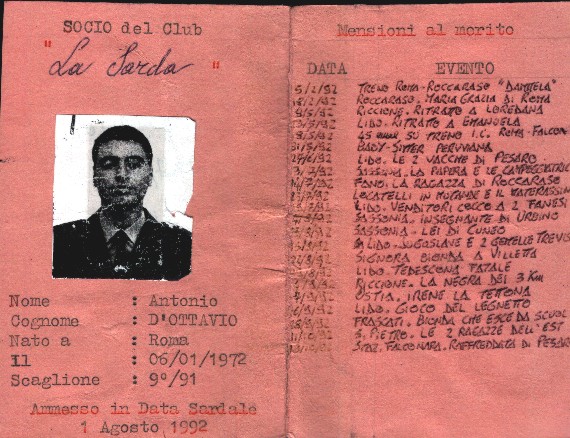 SOCIO del Club
" La Sarda "
Nome : Antonio
Cognome : D'OTTAVIO
Nato a : Roma
Il : 06/01/1972
Scaglione : 9º/91
Ammesso in Data Sardale
1 Agosto 1992
Mensioni al merito
DATA EVENTO
5/2/92 TRENO ROMA-ROCCARASO "DANIELA"
ROCCARASO. MARIA GRAZIA DI ROMA
RICCIONE. RITRATTO A LOREDANA
LIDO. RITRATTO A EMANUELA
45 SU TRENO I.C. ROMA-FALCON
BABY-SITTER PERUVIANA
LIDO. LE 2 VACCHE DI PESARO
SASSONIA. LA PAPERA E LE CAMPEGGIATRIC
FANO. LA RAGAZZA DI ROCCARASO
LOCATELLI IN MUTANDE E IL MATERASSIN
LIDO. VENDITORI COCCO A 2 FANESI
SASSONIA. INSEGNANTE DI URBINO
SASSONIA. LEI DI CUNEO
LIDO. JUGOSLAVE E 2 GEMELLE TREVIS
SIGNORA BIONDA A VILLETTA
LIDO. TEDESCONA FATALE
RICCIONE. LA NEGRA DEI 3 KM
OSTIA. IRENE LA TETTONA
LIDO. GIOCO DEL LEGNETTO
FRASCATI. BIONDA CHE ESCE DA SCUOL
S. PIETRO. LE 2 RAGAZZE DELL'EST
STAZ. FALCONARA. RAFFREDDATA DI PESARO